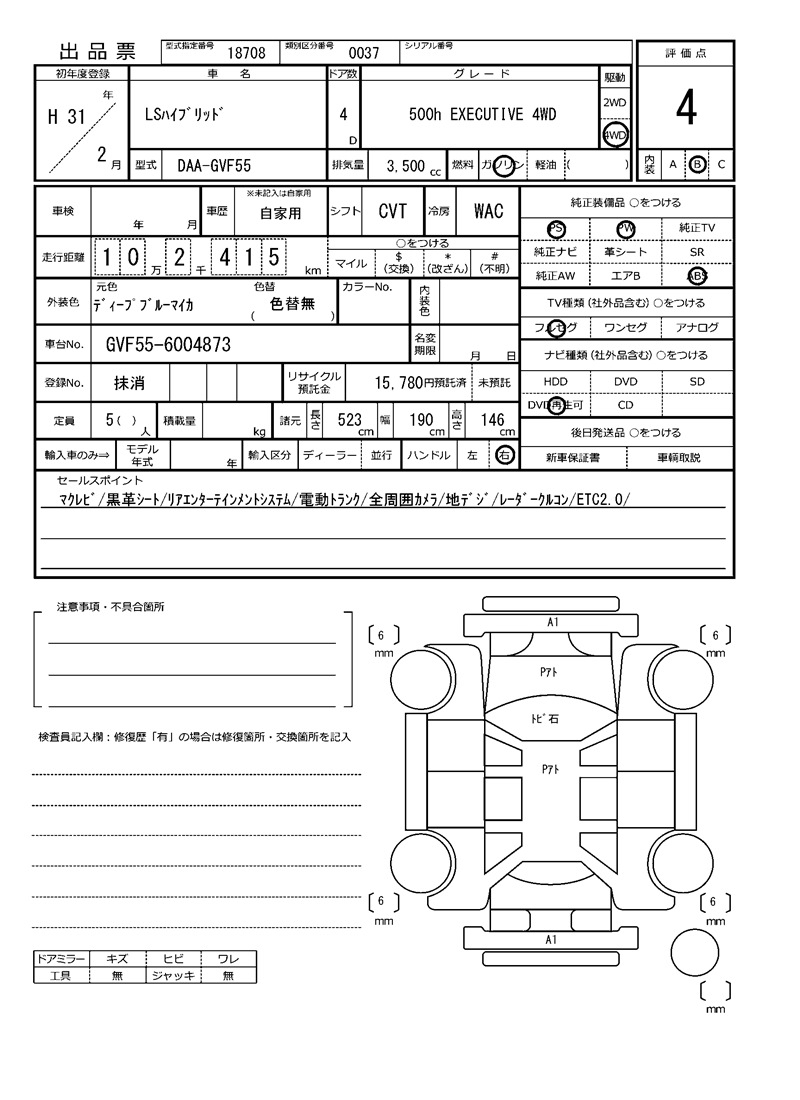 出品票 型式指定番号 18708 類別区分番号 0037 シリアル番号
評価点
4
内装 A B C
初年度登録 車名 ドア数 グレード 駆動
H 31 年 2 月 LSﾊｲﾌﾞﾘｯﾄﾞ 4 D 500h EXECUTIVE 4WD 2WD 4WD
型式 DAA-GVF55 排気量 3,500 cc 燃料 ガソリン 軽油 ( )
車検 年 月 車歴 ※未記入は自家用 自家用 シフト CVT 冷房 WAC
走行距離 1 0 万 2 千 4 1 5 km ○をつける
マイル $(交換) *(改ざん) #(不明)
外装色 元色 ﾃﾞｨｰﾌﾟﾌﾞﾙｰﾏｲｶ 色替 ( 色替無 ) カラーNo. 内装色
車台No. GVF55-6004873 名変期限 月 日
登録No. 抹消 リサイクル預託金 15,780円預託済 未預託
定員 5 ( ) 人 積載量 kg 諸元 長さ 523 cm 幅 190 cm 高さ 146 cm
輸入車のみ⇒ モデル年式 年 輸入区分 ディーラー 並行 ハンドル 左 右
純正装備品 ○をつける
PS PW 純正TV
純正ナビ 革シート SR
純正AW エアB ABS
TV種類(社外品含む) ○をつける
フルセグ ワンセグ アナログ
ナビ種類(社外品含む) ○をつける
HDD DVD SD
DVD再生可 CD
後日発送品 ○をつける
新車保証書 車輌取説
セールスポイント
ﾏｸﾚﾋﾞ/黒革ｼｰﾄ/ﾘｱｴﾝﾀｰﾃｲﾝﾒﾝﾄｼｽﾃﾑ/電動ﾄﾗﾝｸ/全周囲ｶﾒﾗ/地ﾃﾞｼﾞ/ﾚｰﾀﾞｰｸﾙｺﾝ/ETC2.0/
注意事項・不具合箇所
検査員記入欄：修復歴「有」の場合は修復箇所・交換箇所を記入
ドアミラー キズ ヒビ ワレ
工具 無 ジャッキ 無
A1
6 mm
6 mm
Pｱﾄ
ﾄﾋﾞ石
Pｱﾄ
6 mm
6 mm
A1
mm